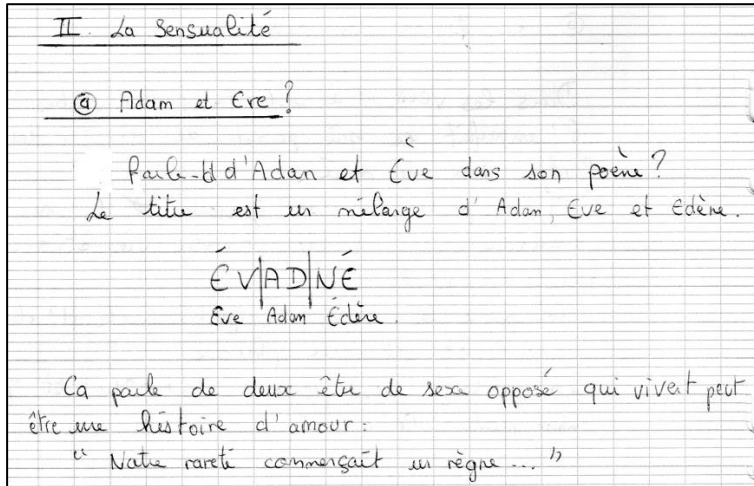 II. La Sensualité
ⓐ Adam et Eve ?
Parle-til d'Adan et Ève dans son poème ?
Le titre est un mélange d'Adam, Eve et Edène.
ÉV|AD|NÉ
Eve Adam Édène.
Ca parle de deux être de sexe opposé qui vivent peut
être une histoire d'amour :
" Notre rareté commençait un règne ... "